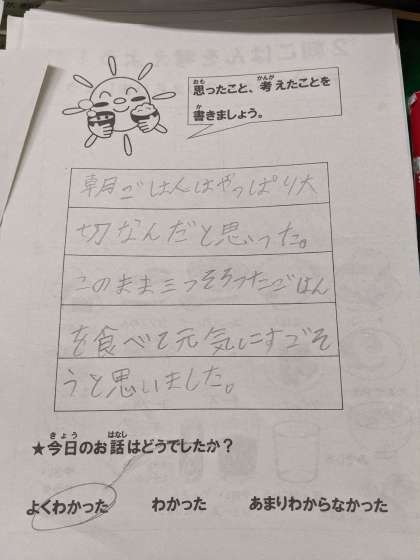 思ったこと、考えたことを
書きましょう。
朝ごはんはやっぱり大
切なんだと思いった。
このまま三つそろったごはん
を食べて元気にすごそ
うと思いました。
★今日のお話はどうでしたか?
よくわかった わかった あまりわからなかった